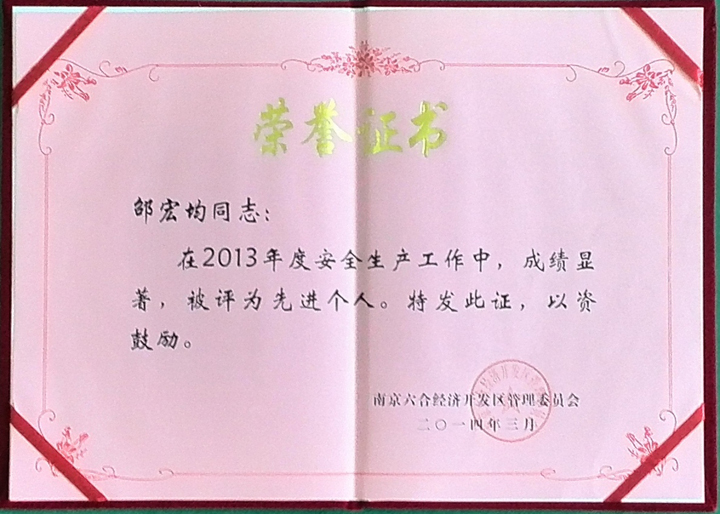 荣誉证书
邵宏均同志：
在2013年度安全生产工作中，成绩显
著，被评为先进个人。特发此证，以资
鼓励。
南京六合经济开发区管理委员会
二〇一四年三月